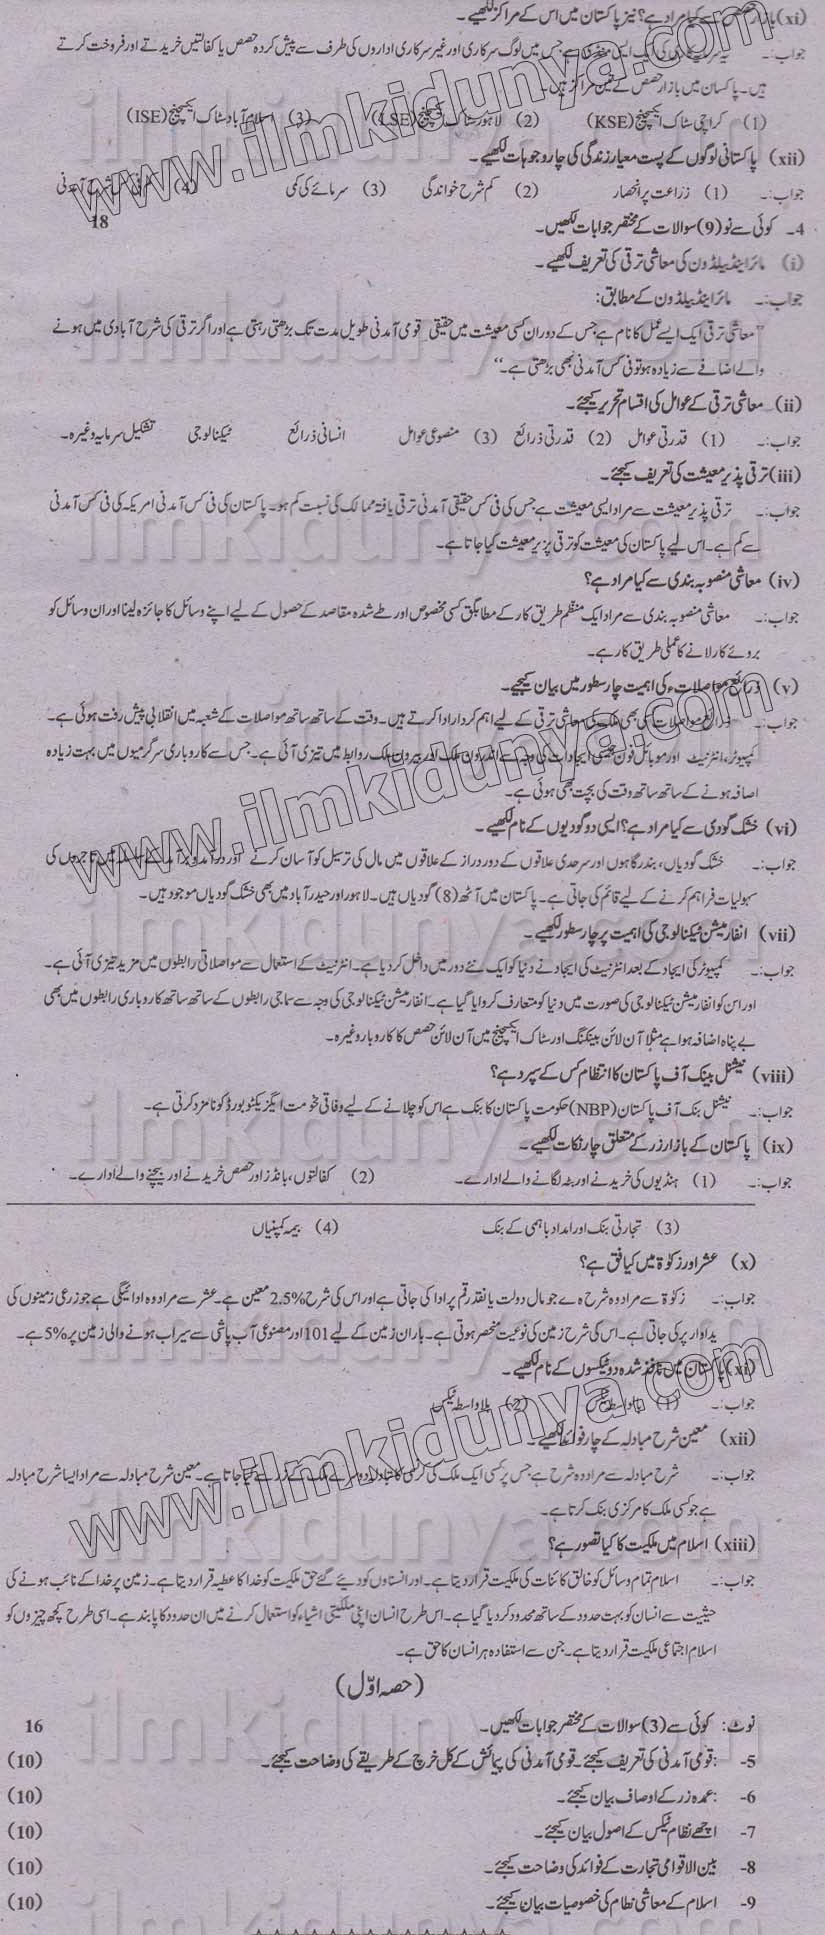 (xi) بازار حصص سے کیا مراد ہے؟ نیز پاکستان میں اس کے مراکز لکھیے۔
جواب:۔ یہ سرمایہ کاری کی ایک ایسی منڈی ہے جس میں لوگ سرکاری اور غیر سرکاری اداروں کی طرف سے پیش کردہ حصص یا کفالتیں خریدتے اور فروخت کرتے
ہیں۔ پاکستان میں بازار حصص کے تین مراکز ہیں۔
(1) کراچی سٹاک ایکسچینج (KSE) (2) لاہور سٹاک ایکسچینج (LSE) (3) اسلام آباد سٹاک ایکسچینج (ISE)
(xii) پاکستانی لوگوں کے پست معیار زندگی کی چار وجوہات لکھیے۔
جواب:۔ (1) زراعت پر انحصار (2) کم شرح خواندگی (3) سرمائے کی کمی (4) کم فی کس شرح آمدنی
4۔ کوئی سے نو (9) سوالات کے مختصر جوابات لکھیں۔ 18
(i) مائر اینڈ بیلڈون کی معاشی ترقی کی تعریف لکھیے۔
جواب:۔ مائر اینڈ بیلڈون کے مطابق:
"معاشی ترقی ایک ایسے عمل کا نام ہے جس کے دوران کسی معیشت میں حقیقی قومی آمدنی طویل مدت تک بڑھتی رہتی ہے اور اگر ترقی کی شرح آبادی میں ہونے
والے اضافے سے زیادہ ہو تو فی کس آمدنی بھی بڑھتی ہے۔"
(ii) معاشی ترقی کے عوامل کی اقسام تحریر کیجئے۔
جواب:۔ (1) قدرتی عوامل (2) قدرتی ذرائع (3) مصنوعی عوامل انسانی ذرائع ٹیکنالوجی تشکیل سرمایہ وغیرہ۔
(iii) ترقی پذیر معیشت کی تعریف کیجئے۔
جواب:۔ ترقی پذیر معیشت سے مراد ایسی معیشت ہے جس کی فی کس حقیقی آمدنی ترقی یافتہ ممالک کی نسبت کم ہو۔ پاکستان کی فی کس آمدنی امریکہ کی فی کس آمدنی
سے کم ہے۔ اس لیے پاکستان کی معیشت کو ترقی پزیر معیشت کہا جاتا ہے۔
(iv) معاشی منصوبہ بندی سے کیا مراد ہے؟
جواب:۔ معاشی منصوبہ بندی سے مراد ایک منظم طریق کار کے مطابق کسی مخصوص اور طے شدہ مقاصد کے حصول کے لیے اپنے وسائل کا جائزہ لینا اور ان وسائل کو
بروئے کار لانے کا عملی طریق کار ہے۔
(v) ذرائع مواصلات کی اہمیت چار سطور میں بیان کیجیے۔
جواب:۔ ذرائع مواصلات کسی بھی ملک کی معاشی ترقی کے لیے اہم کردار ادا کرتے ہیں۔ وقت کے ساتھ ساتھ مواصلات کے شعبہ میں انقلابی پیش رفت ہوئی ہے۔
کمپیوٹر، انٹرنیٹ اور موبائل فون جیسی ایجادات کی وجہ سے اندرون ملک اور بیرون ملک روابط میں تیزی آئی ہے۔ جس سے کاروباری سرگرمیوں میں بہت زیادہ
اضافہ ہونے کے ساتھ ساتھ وقت کی بچت بھی ہوئی ہے۔
(vi) خشک گودی سے کیا مراد ہے؟ ایسی دو گودیوں کے نام لکھیے۔
جواب:۔ خشک گودیاں، بندرگاہوں اور سرحدی علاقوں کے دور دراز کے علاقوں میں مال کی ترسیل کو آسان کرنے اور درآمد و برآمد کے سلسلہ میں تاجروں کی
سہولیات فراہم کرنے کے لیے قائم کی جاتی ہے۔ پاکستان میں آٹھ (8) گودیاں ہیں۔ لاہور اور حیدر آباد میں بھی خشک گودیاں موجود ہیں۔
(vii) انفارمیشن ٹیکنالوجی کی اہمیت پر چار سطور لکھیے۔
جواب:۔ کمپیوٹر کی ایجاد کے بعد انٹرنیٹ کی ایجاد نے دنیا کو ایک نئے دور میں داخل کر دیا ہے۔ انٹرنیٹ کے استعمال سے مواصلاتی رابطوں میں مزید تیزی آئی ہے۔
اور اس کو انفارمیشن ٹیکنالوجی کی صورت میں دنیا کو متعارف کروایا گیا ہے۔ انفارمیشن ٹیکنالوجی کی وجہ سے سماجی رابطوں کے ساتھ ساتھ کاروباری رابطوں میں بھی
بے پناہ اضافہ ہوا ہے مثلاً آن لائن بینکنگ اور سٹاک ایکسچینج میں آن لائن حصص کا کاروبار وغیرہ۔
(viii) نیشنل بینک آف پاکستان کا انتظام کس کے سپرد ہے؟
جواب:۔ نیشنل بنک آف پاکستان (NBP) حکومت پاکستان کا بنک ہے اس کو چلانے کے لیے وفاقی حکومت ایگزیکٹو بورڈ کو نامزد کرتی ہے۔
(ix) پاکستان کے بازار زر کے متعلق چار نکات لکھیے۔
جواب:۔ (1) ہنڈیوں کی خریدنے اور بٹہ لگانے والے ادارے۔ (2) کفالتوں، بانڈز اور حصص خریدنے اور بیچنے والے ادارے۔
(3) تجارتی بنک اور امداد باہمی کے بنک (4) بیمہ کمپنیاں
(x) عشر اور زکوٰۃ میں کیا فرق ہے؟
جواب:۔ زکوٰۃ سے مراد وہ شرح ہے جو مال دولت یا نقد رقم پر ادا کی جاتی ہے اور اس کی شرح 2.5% معین ہے۔ عشر سے مراد وہ ادائیگی ہے جو زرعی زمینوں کی
پیداوار پر کی جاتی ہے۔ اس کی شرح زمین کی نوعیت منحصر ہوتی ہے۔ باران زمین کے لیے 101 اور مصنوعی آب پاشی سے سیراب ہونے والی زمین پر 5% ہے۔
(xi) پاکستان میں نافذ شدہ دو ٹیکسوں کے نام لکھیے۔
جواب:۔ (1) بلاواسطہ ٹیکس (2) بلا واسطہ ٹیکس
(xii) معین شرح مبادلہ کے چار فوائد لکھیے۔
جواب:۔ شرح مبادلہ سے مراد وہ شرح ہے جس پر کسی ایک ملک کی کرنسی کا تبادلہ دوسرے ملک کے زر سے کیا جاتا ہے۔ معین شرح مبادلہ سے مراد ایسا شرح مبادلہ
ہے جو کسی ملک کا مرکزی بنک کرتا ہے۔
(xiii) اسلام میں ملکیت کا کیا تصور ہے؟
جواب:۔ اسلام تمام وسائل کو خالق کائنات کی ملکیت قرار دیتا ہے۔ اور انسانوں کو دیئے گئے حق ملکیت کو خدا کا عطیہ قرار دیتا ہے۔ زمین پر خدا کے نائب ہونے کی
حیثیت سے انسان کو بہت حدود کے ساتھ محدود کر دیا گیا ہے۔ اس طرح انسان اپنی ملکیتی اشیاء کو استعمال کرنے میں ان حدود کا پابند ہے۔ اسی طرح کچھ چیزوں کو
اسلام اجتماعی ملکیت قرار دیتا ہے۔ جن سے استفادہ ہر انسان کا حق ہے۔
(حصہ اوّل)
نوٹ: کوئی سے (3) سوالات کے مختصر جوابات لکھیں۔ 16
5- قومی آمدنی کی تعریف کیجئے۔ قومی آمدنی کی پیمائش کے کل خرچ کے طریقے کی وضاحت کیجئے۔ (10)
6- عمدہ زر کے اوصاف بیان کیجئے۔ (10)
7- اچھے نظام ٹیکس کے اصول بیان کیجئے۔ (10)
8- بین الاقوامی تجارت کے فوائد کی وضاحت کیجئے۔ (10)
9- اسلام کے معاشی نظام کی خصوصیات بیان کیجئے۔ (10)
www.ilmkidunya.com
www.ilmkidunya.com
www.ilmkidunya.com